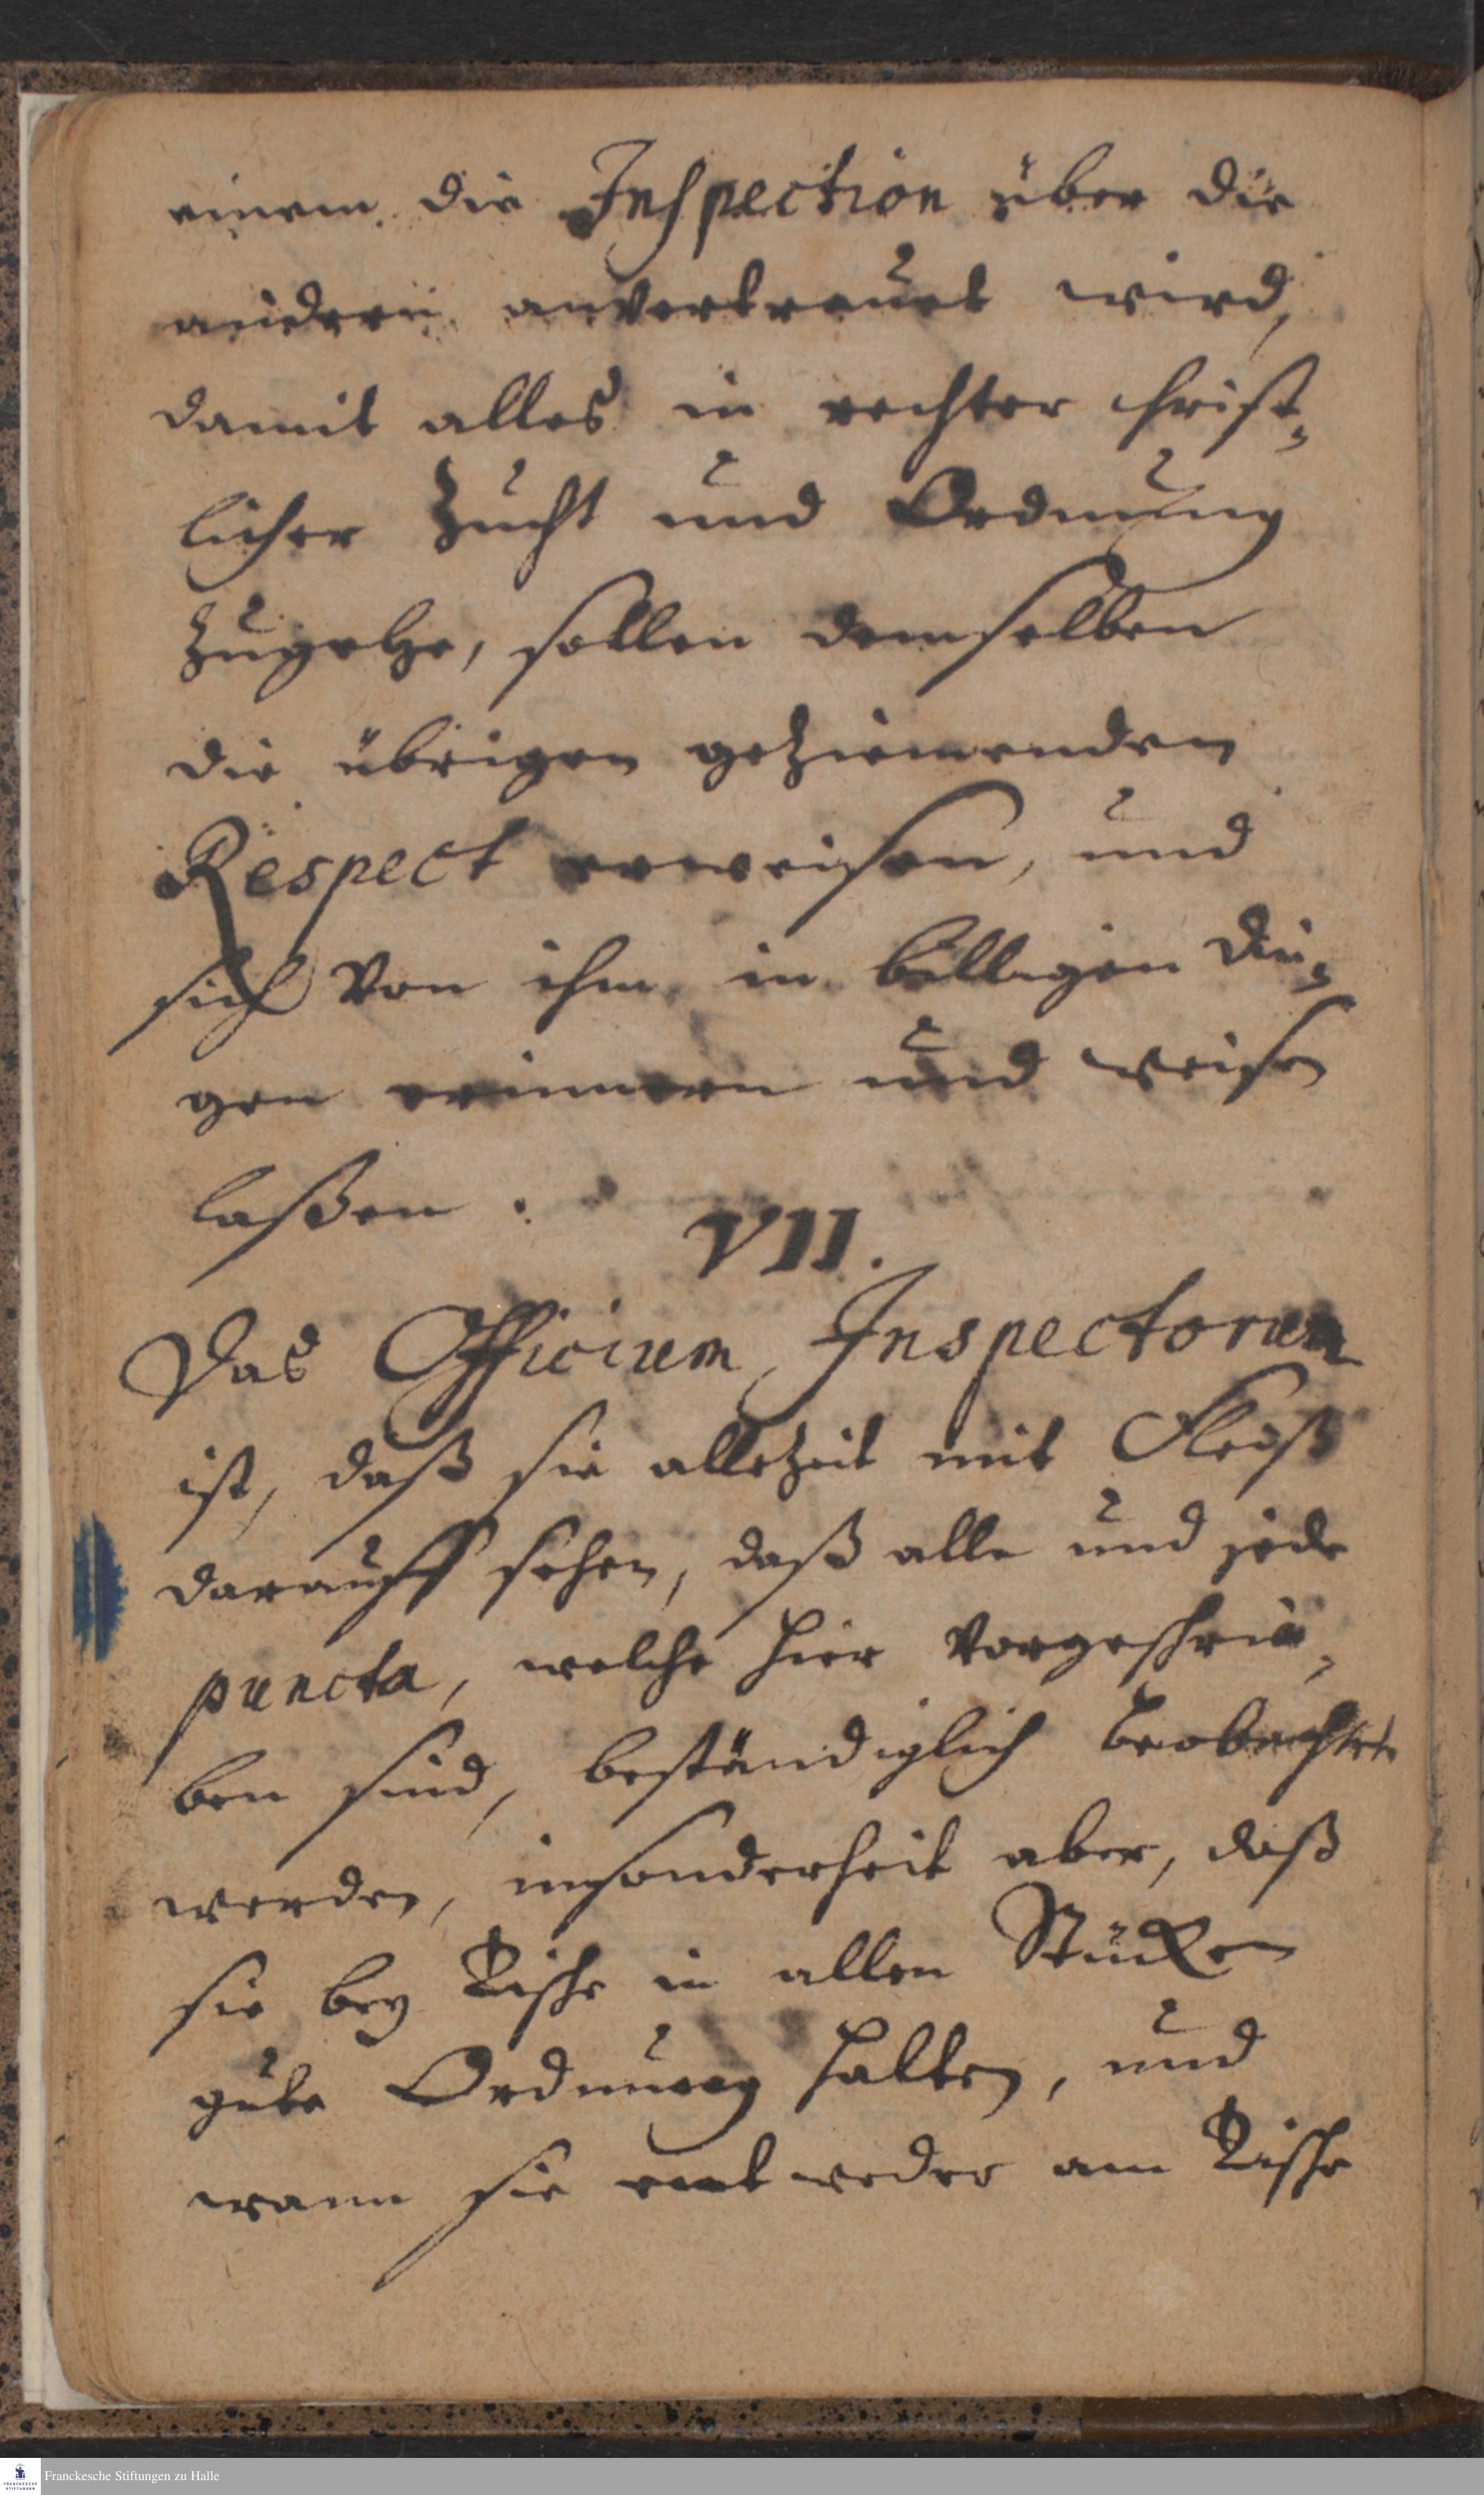 einem die Inspection über die
andern anvertrauet wird,
damit alles in rechter christ-
licher Zucht und Ordnung
zugehe, sollen demselben
die übrigen geziemenden
Respect erweisen, und
sich von ihm in billigen Din-
gen erinnern und weisen
laßen.
VII.
Das Officium Inspectorum
ist, daß sie allezeit mit Fleiß
darauff sehen, daß alle und jede
puncta, welche hier vorgeschrie-
ben sind, beständiglich beobachtet
werden, insonderheit aber, daß
sie bey Tische in allen Stücken
gute Ordnung halten, und
wann sie entweder am Tische
Franckesche Stiftungen zu Halle